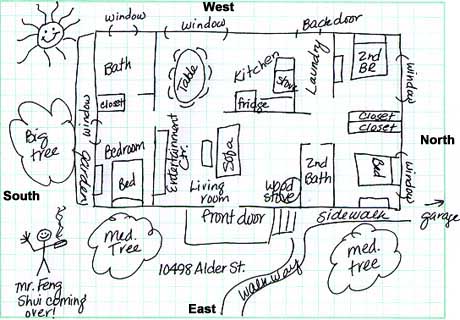 West
window
window
Back door
Bath
Table
Kitchen
stove
fridge
Laundry
2nd
BR
window
closet
closet
closet
window
Garden
Big
tree
Bedroom
Bed
Entertainment
Ctr.
Sofa
Living
room
wood
stove
2nd
Bath
Bed
window
North
South
front door
sidewalk
garage
med.
Tree
med.
tree
10498 Alder St.
walkway
East
mr. Feng
Shui coming
over!